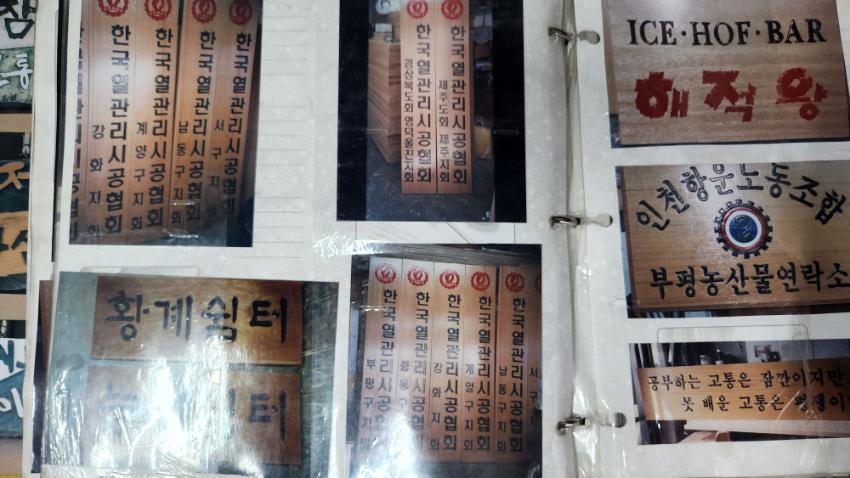 한국열관리시공협회
강화지회
한국열관리시공협회
계양구지회
한국열관리시공협회
남동구지회
한국열관리시공협회
서구지회
한국열관리시공협회
경상북도회 영덕울진지회
한국열관리시공협회
제주도회 제주시회
황계쉼터
쉼터
한국열관리시공협회
부평구지회
한국열관리시공협회
중동구지회
한국열관리시공협회
강화지회
한국열관리시공협회
계양구지회
한국열관리시공협회
남동구지회
서구
ICE·HOF·BAR
해적왕
인천항운노동조합
부평농산물연락소
공부하는 고통은 잠깐이지만
못 배운 고통은 평생이